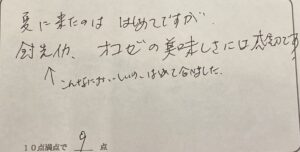 夏に来たのは はじめてですが、
オコゼの美味しさには感動です
↑こんなにおいしいの、はじめて食べました。
10点満点で 9 点